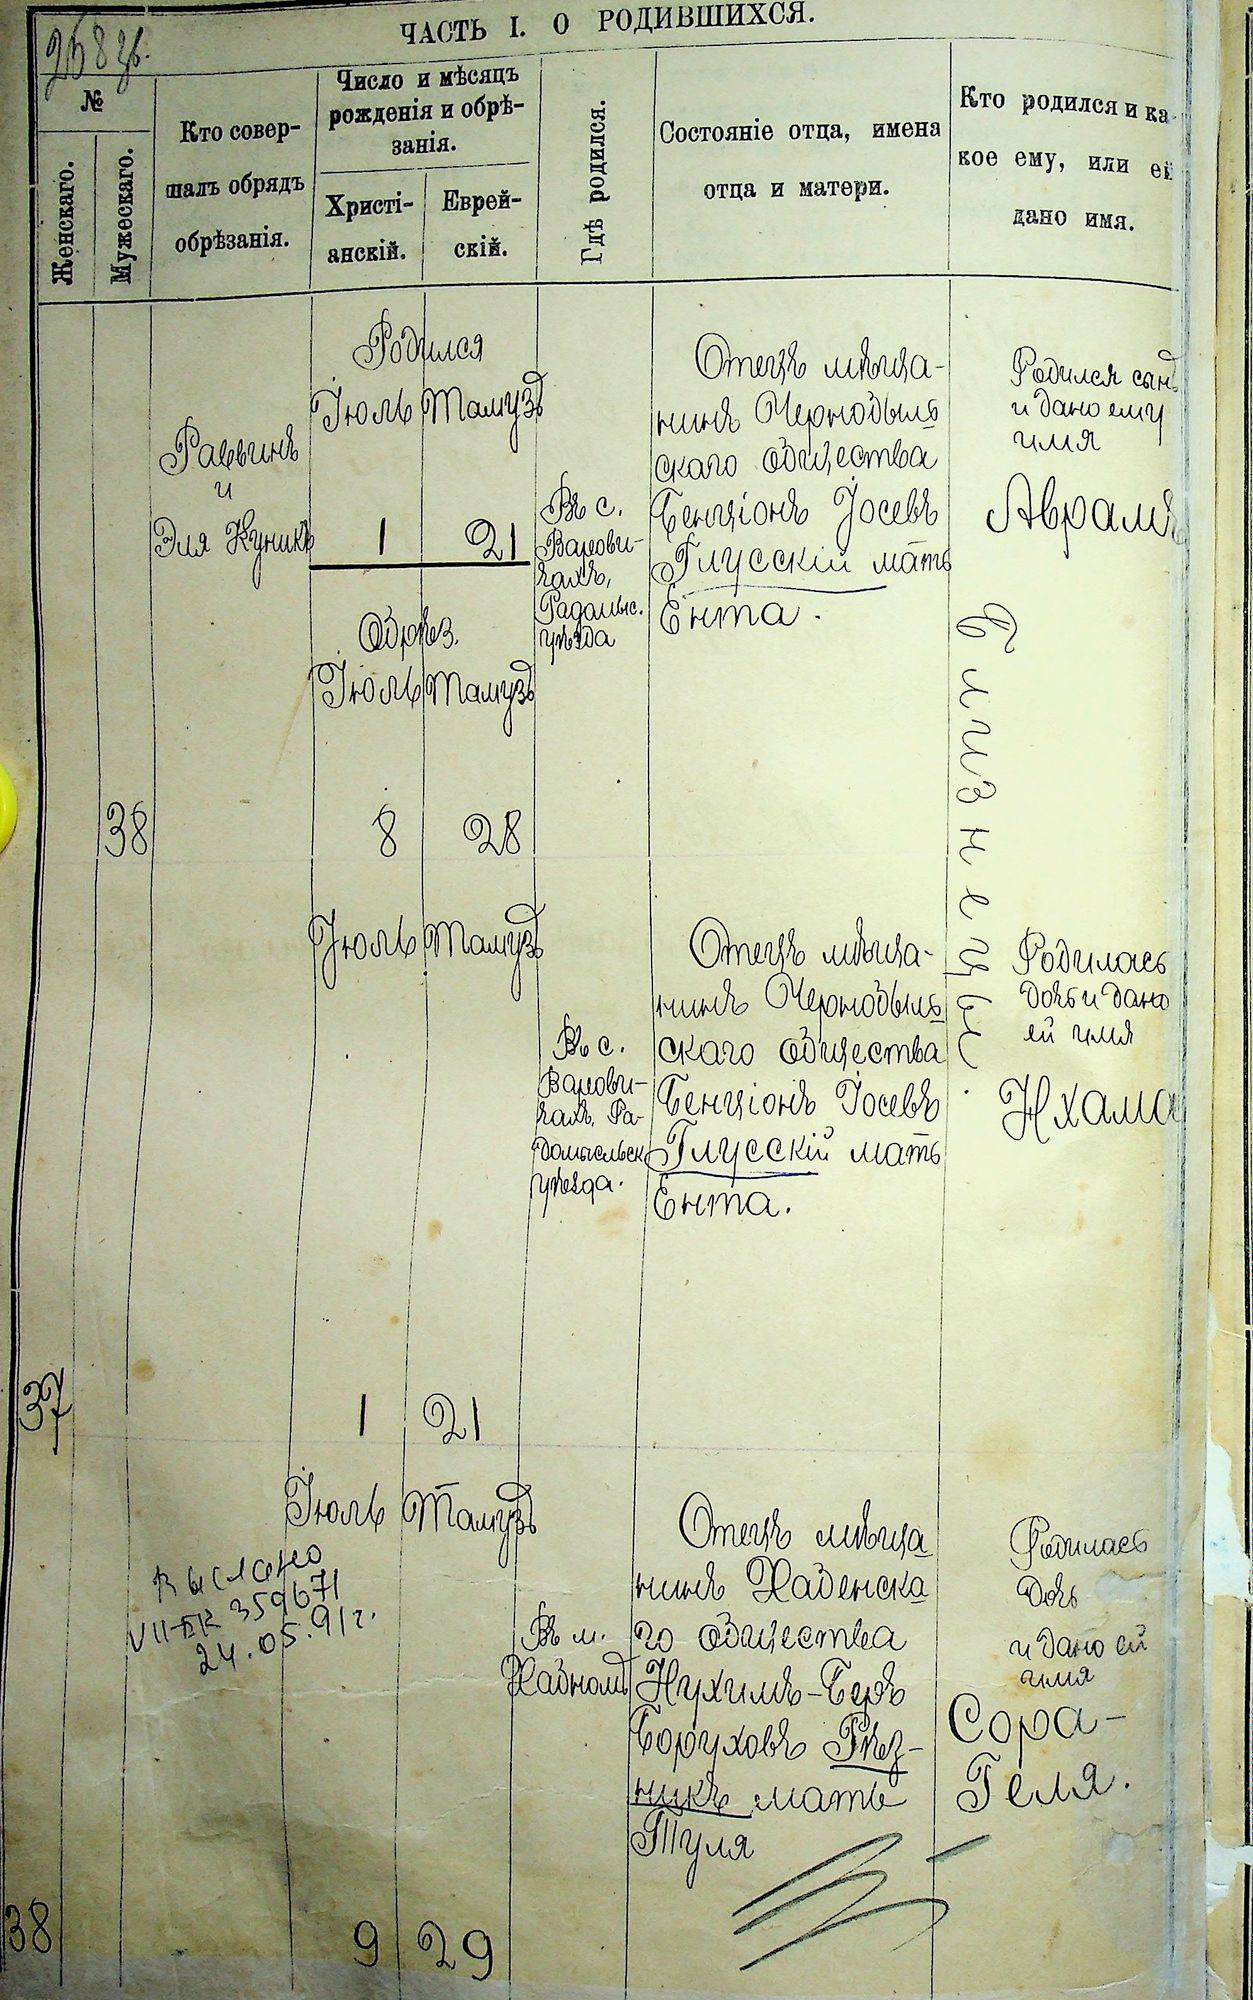 258 зв.
ЧАСТЬ I. О РОДИВШИХСЯ.
№
Женскаго.
Мужескаго.
Кто совер-
шалъ обрядъ
обрѣзанія.
Число и мѣсяцъ
рожденія и обрѣ-
занія.
Христі-
анскій.
Еврей-
скій.
Гдѣ родился.
Состояніе отца, имена
отца и матери.
Кто родился и ка-
кое ему, или ей
дано имя.
38
Раввинъ
и
Эля Куникъ
Родился
Іюль Тамузъ
1 21
Обрѣз.
Іюль Тамузъ
8 28
Въ с.
Варови-
чахъ,
Радомыс.
уѣзда
Отецъ мѣща-
нинъ Чернобыль
скаго общества
Бенціонъ Іосевъ
Глусскій мать
Ента.
Родился сынъ
и дано ему
имя
Аврамъ
Близнецы.
37
Іюль Тамузъ
1 21
Въ с.
Варови-
чахъ, Ра-
домысльск
уѣзда.
Отецъ мѣща-
нинъ Чернобыль
скаго общества
Бенціонъ Іосевъ
Глусскій мать
Ента.
Родилась
дочь и дано
ей имя
Нхама
38
Выслано
VII-БК 359671
24.05.91г.
Іюль Тамузъ
9 29
Въ м.
Хабномъ
Отецъ мѣща
нинъ Хабенска
го общества
Нухимъ-Беръ
Боруховъ Рѣз-
никъ мать
Туля
Родилась
дочь
и дано ей
имя
Сора-
Геля.